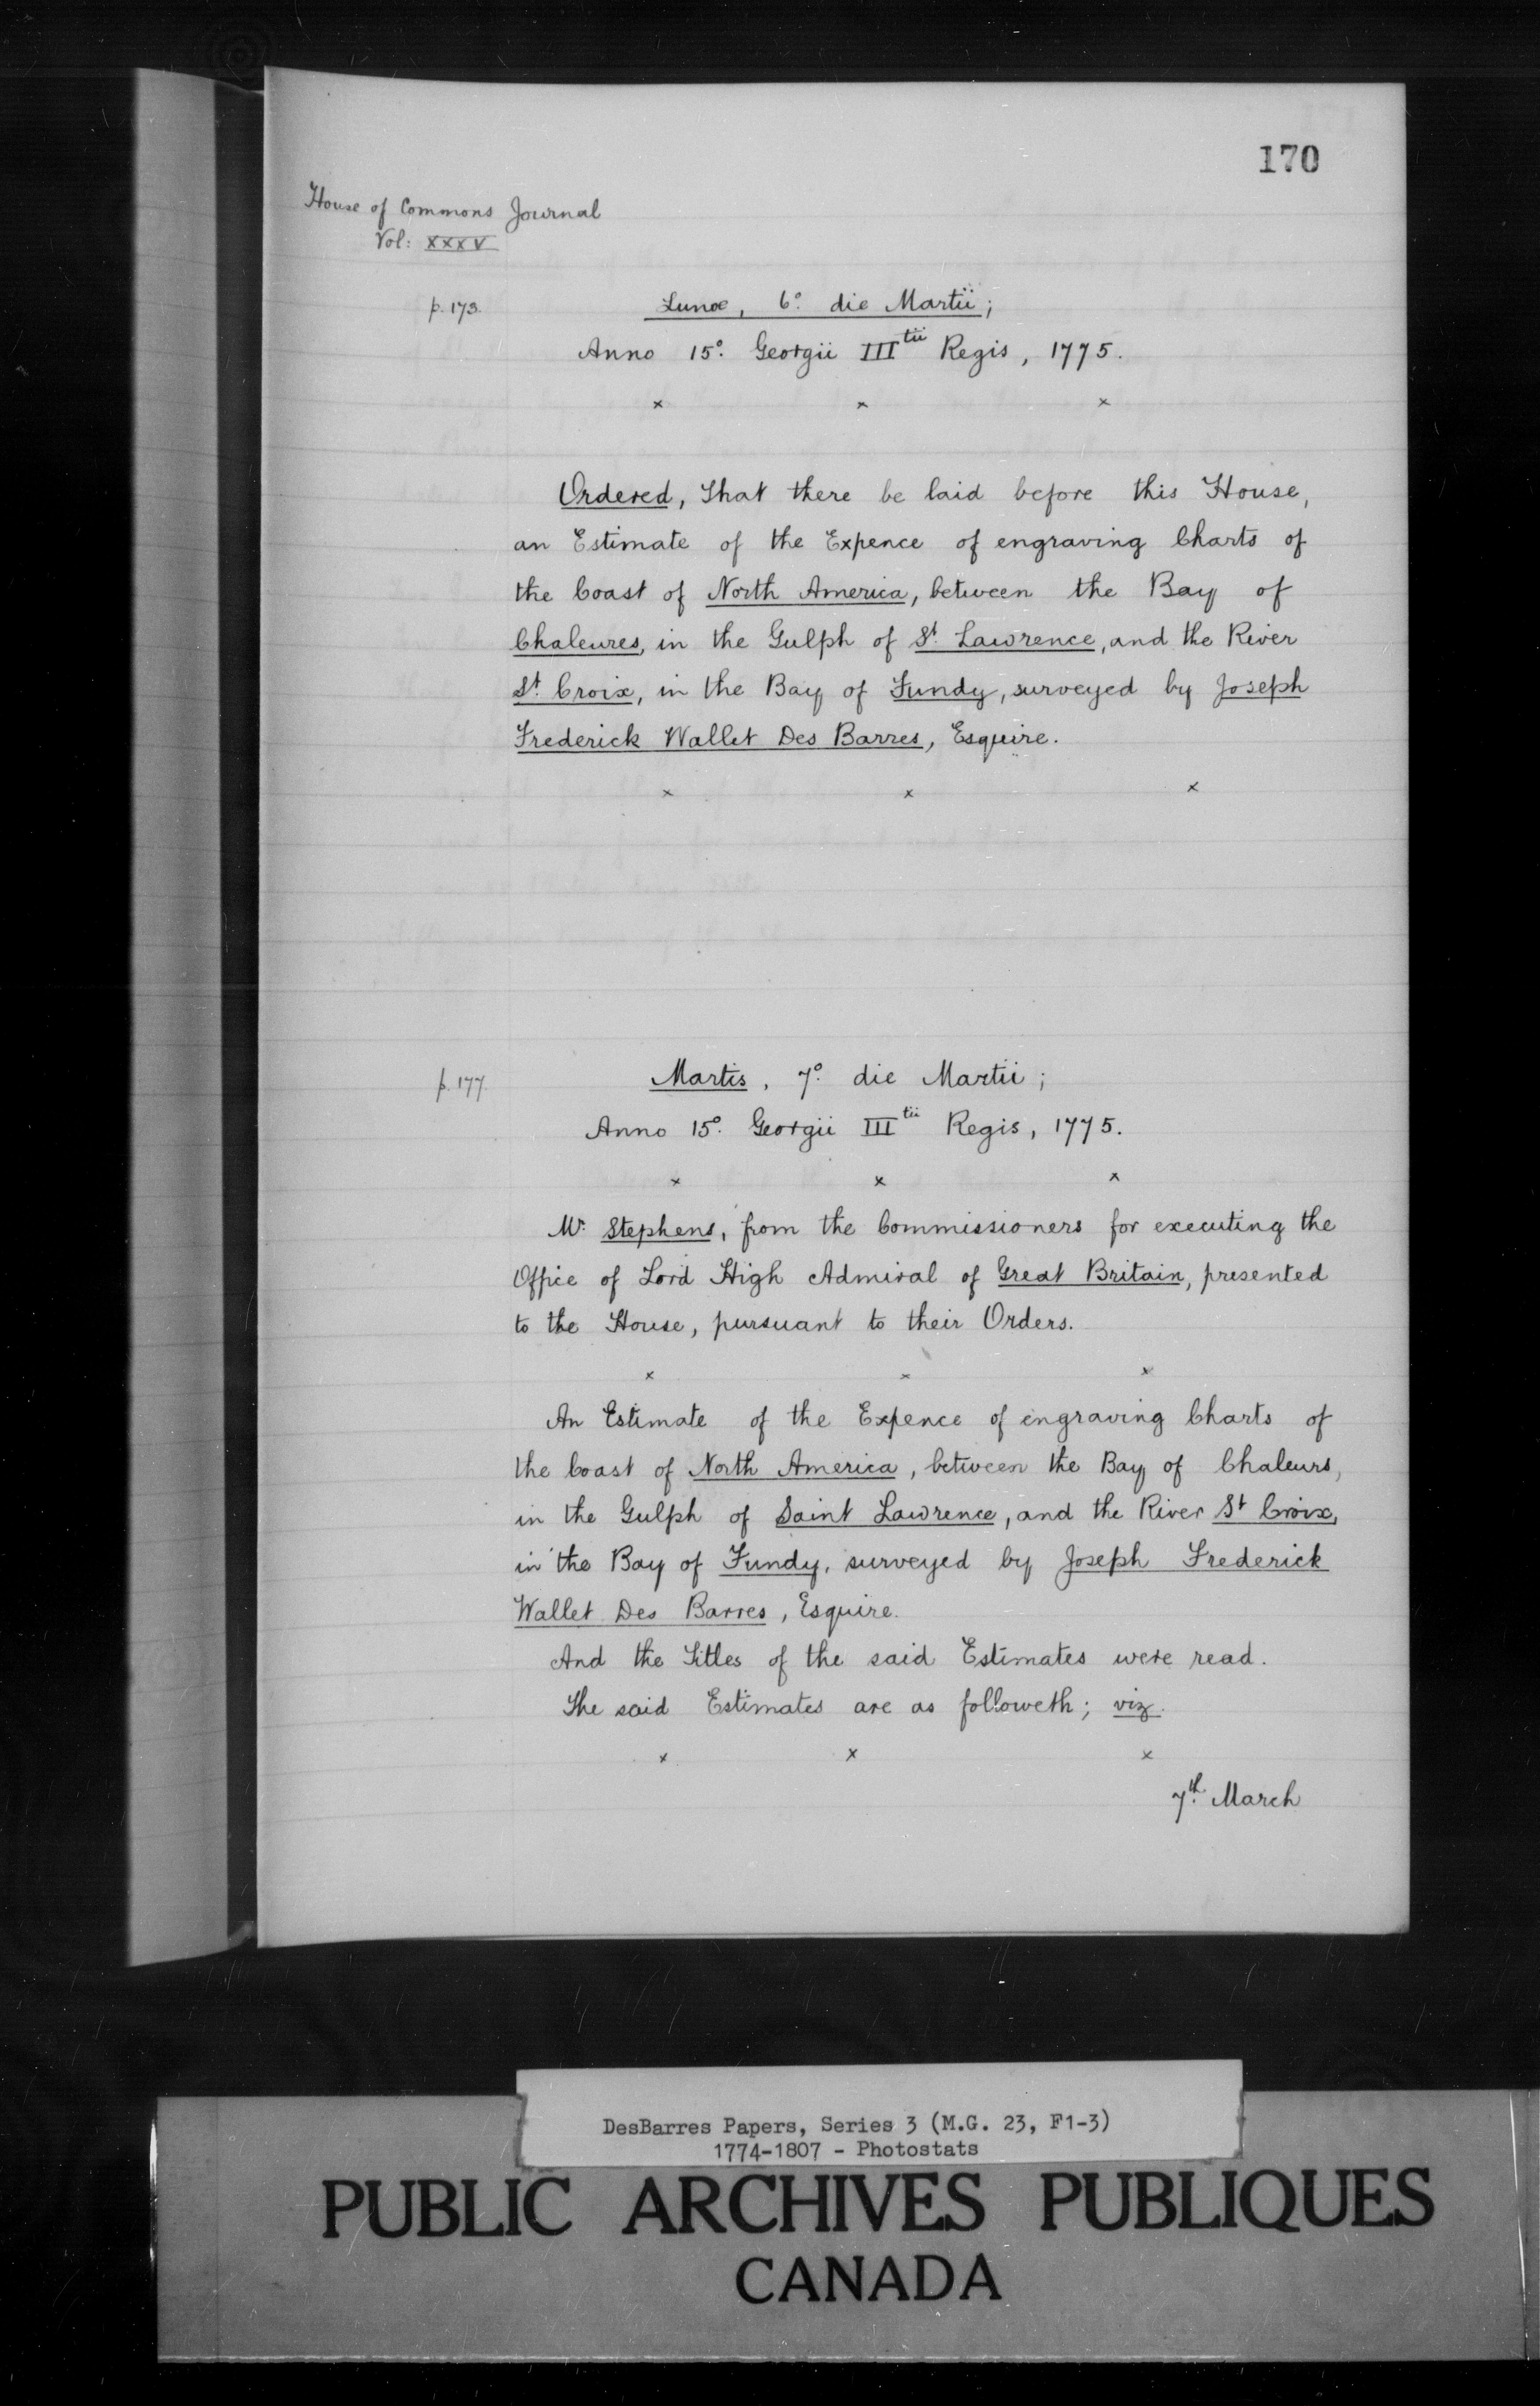 170
House of Commons Journal
Vol: XXXV
p. 173. Lunæ, 6° die Martii;
Anno 15° Georgii III tii Regis, 1775.
x x x
Ordered, That there be laid before this House,
an Estimate of the Expence of engraving Charts of
the Coast of North America, between the Bay of
Chaleures, in the Gulph of St. Lawrence, and the River
St. Croix, in the Bay of Fundy, surveyed by Joseph
Frederick Wallet Des Barres, Esquire.
x x x
p. 177. Martis, 7° die Martii;
Anno 15° Georgii III tii Regis, 1775.
x x x
Mr. Stephens, from the Commissioners for executing the
Office of Lord High Admiral of Great Britain, presented
to the House, pursuant to their Orders.
x x x
An Estimate of the Expence of engraving Charts of
the Coast of North America, between the Bay of Chaleurs,
in the Gulph of Saint Lawrence, and the River St Croix,
in the Bay of Fundy, surveyed by Joseph Frederick
Wallet Des Barres, Esquire.
And the Titles of the said Estimates were read.
The said Estimates are as followeth; viz.
x x x
7th March
DesBarres Papers, Series 3 (M.G. 23, F1-3)
1774-1807 - Photostats
PUBLIC ARCHIVES PUBLIQUES
CANADA